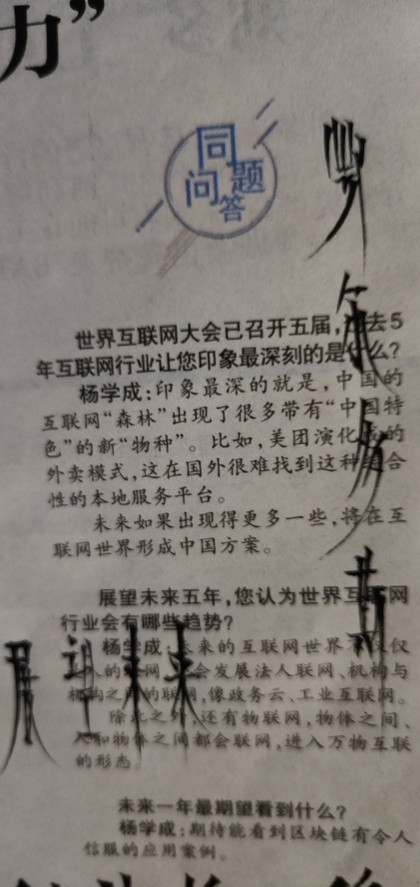 力”
同
问题
答
世界互联网大会已召开五届，过去5
年互联网行业让您印象最深刻的是什么？
杨学成：印象最深的就是，中国的
互联网“森林”出现了很多带有“中国特
色”的新“物种”。比如，美团演化出的
外卖模式，这在国外很难找到这种综合
性的本地服务平台。
未来如果出现得更多一些，将在互
联网世界形成中国方案。
展望未来五年，您认为世界互联网
行业会有哪些趋势？
杨学成：未来的互联网世界不仅仅
会发展法人联网、机构与
机构之间的联网，像政务云、工业互联网。
除此之外，还有物联网，物体之间、
人和物体之间都会联网，进入万物互联
的形态。
未来一年最期望看到什么？
杨学成：期待能看到区块链有令人
信服的应用案例。
展望未来